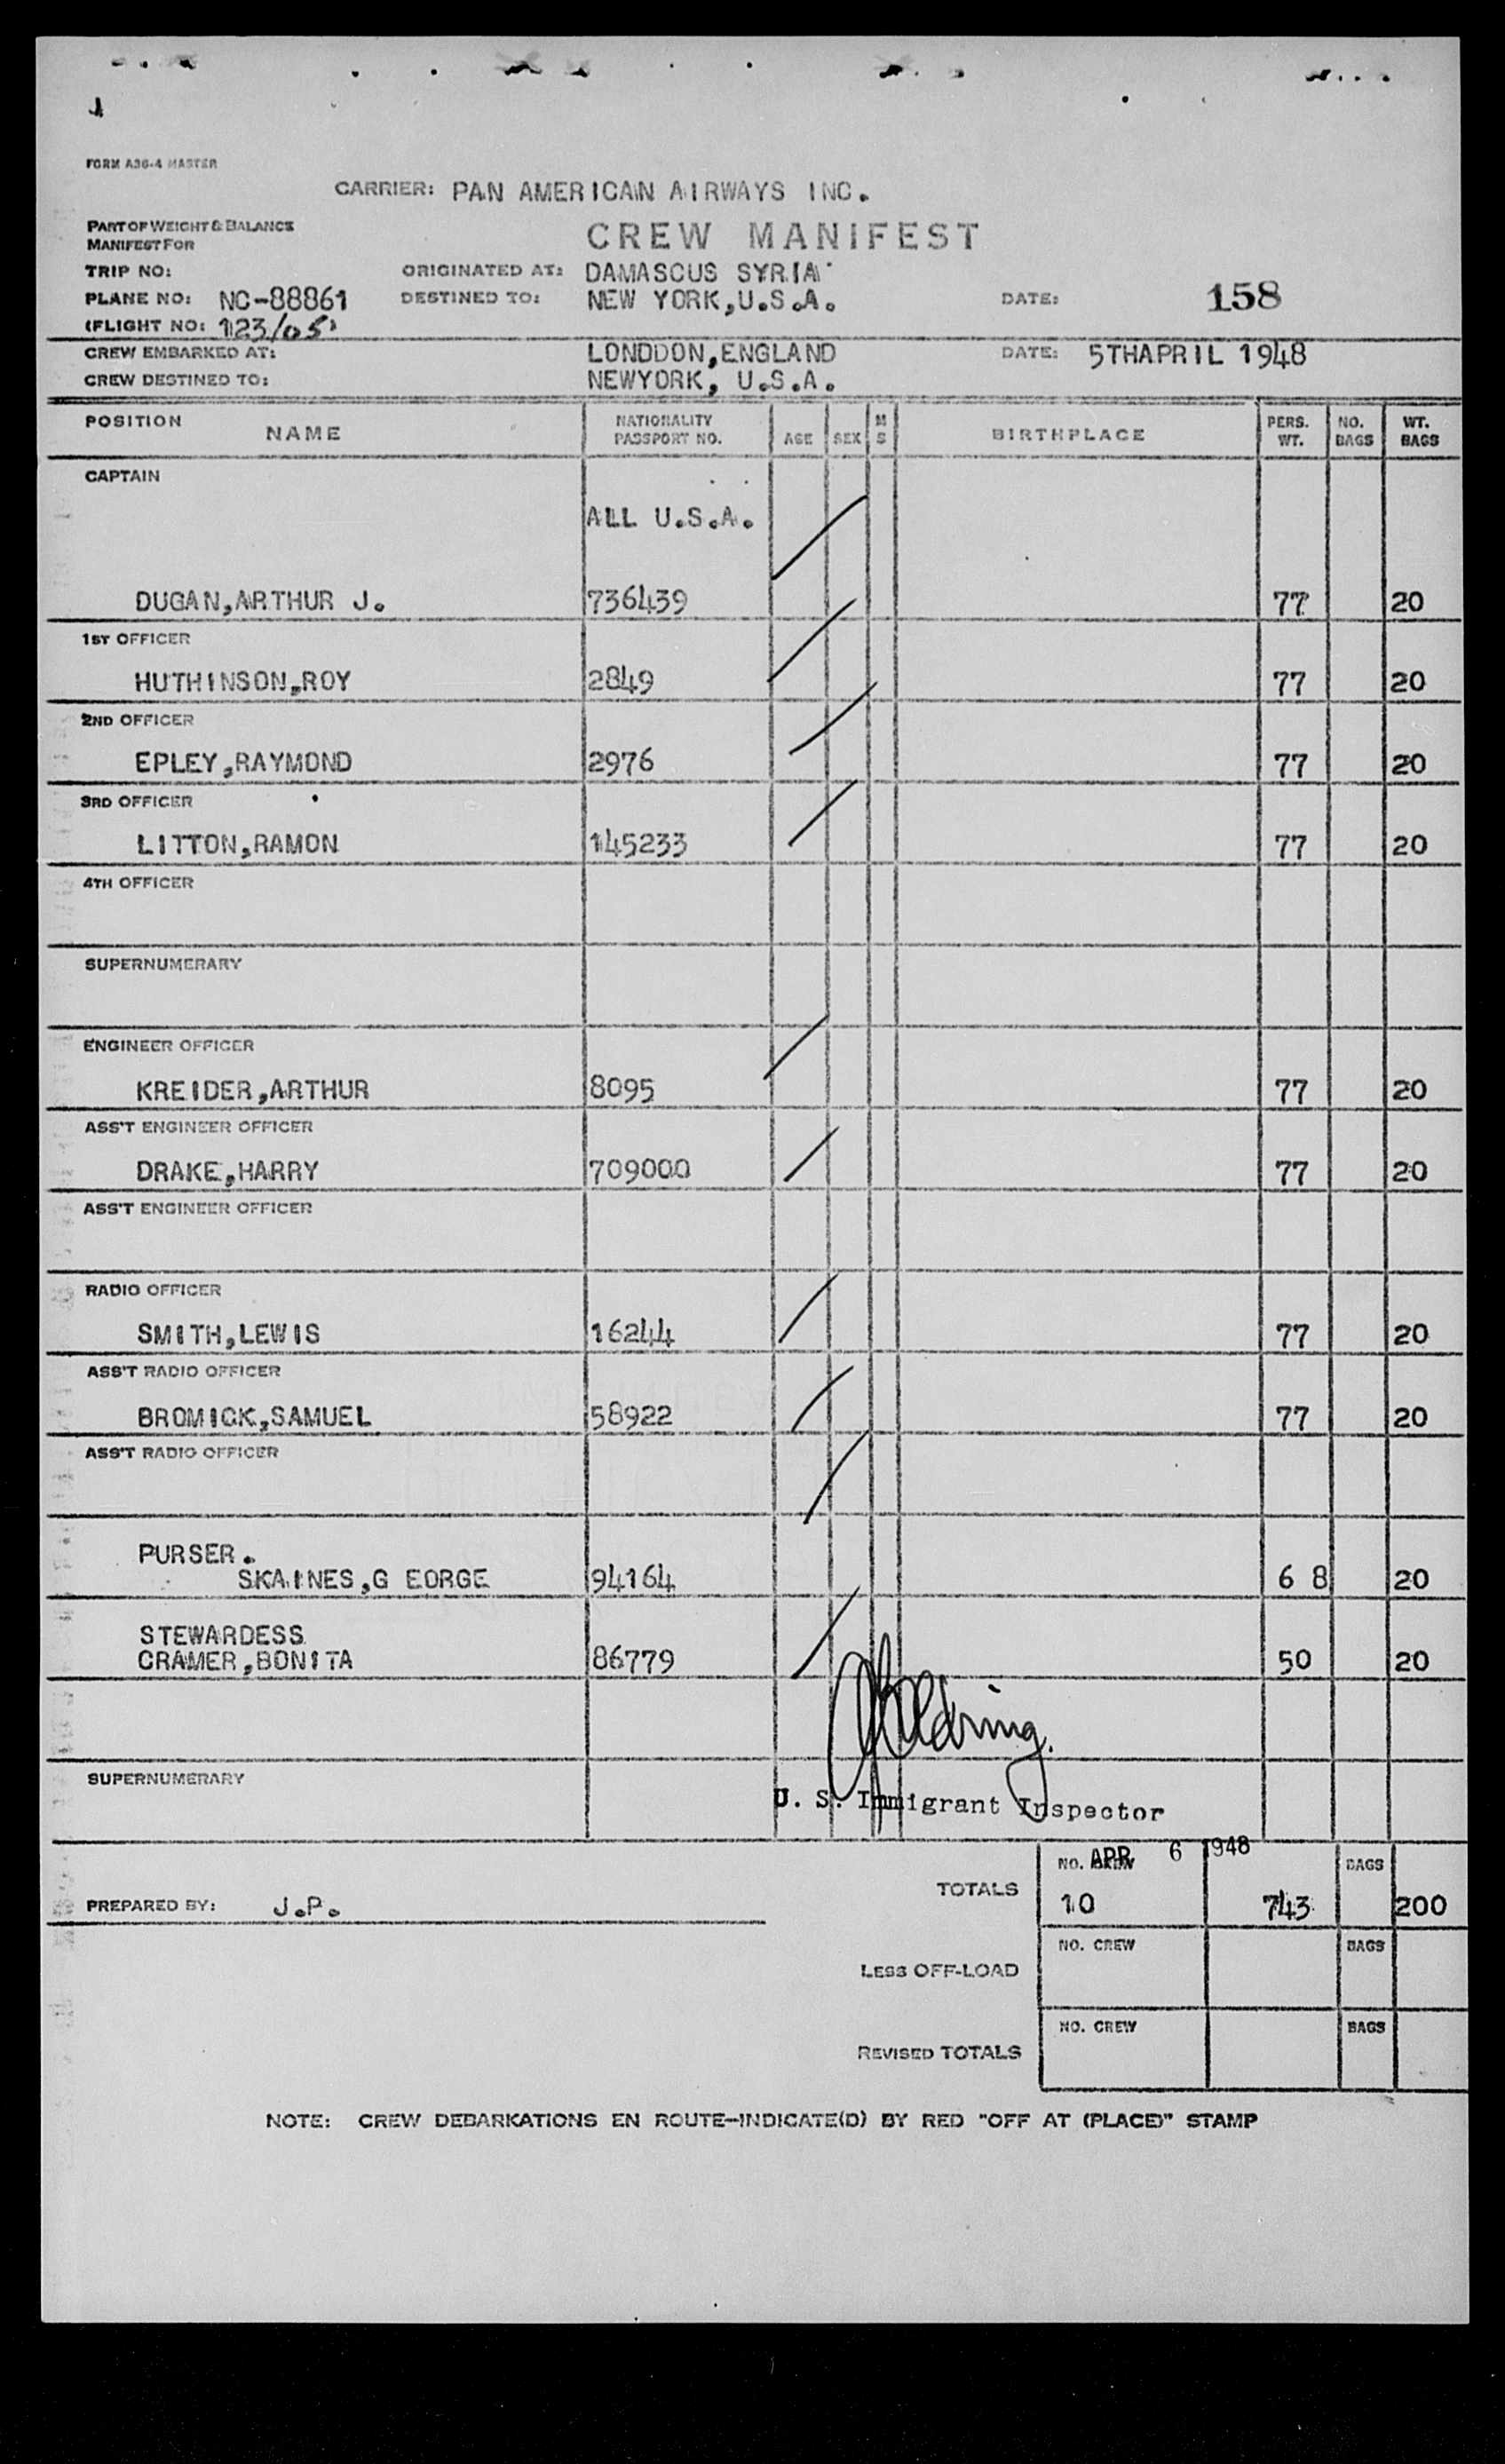 FORM A36-4 MASTER
CARRIER: PAN AMERICAN AIRWAYS INC.
PART OF WEIGHT & BALANCE
MANIFEST FOR
CREW MANIFEST
TRIP NO: ORIGINATED AT: DAMASCUS SYRIA
PLANE NO: NC-88861 DESTINED TO: NEW YORK,U.S.A. DATE: 158
(FLIGHT NO: 123/05)
CREW EMBARKED AT: LONDDON,ENGLAND DATE: 5THAPRIL 1948
CREW DESTINED TO: NEWYORK, U.S.A.
POSITION NAME NATIONALITY PASSPORT NO. AGE SEX M S BIRTHPLACE PERS. WT. NO. BAGS WT. BAGS
CAPTAIN
ALL U.S.A.
DUGAN,ARTHUR J. 736439 77 20
1ST OFFICER
HUTHINSON,ROY 2849 77 20
2ND OFFICER
EPLEY,RAYMOND 2976 77 20
3RD OFFICER
LITTON,RAMON 145233 77 20
4TH OFFICER
SUPERNUMERARY
ENGINEER OFFICER
KREIDER,ARTHUR 8095 77 20
ASS'T ENGINEER OFFICER
DRAKE,HARRY 709000 77 20
ASS'T ENGINEER OFFICER
RADIO OFFICER
SMITH,LEWIS 16244 77 20
ASS'T RADIO OFFICER
BROMICK,SAMUEL 58922 77 20
ASS'T RADIO OFFICER
PURSER.
SKAINES,G EORGE 94164 6 8 20
STEWARDESS
CRAMER,BONITA 86779 50 20
SUPERNUMERARY
U. S. Immigrant Inspector
APR 6 1948
NO. CREW BAGS
TOTALS
PREPARED BY: J.P. 10 743 200
NO. CREW BAGS
LESS OFF-LOAD
NO. CREW BAGS
REVISED TOTALS
NOTE: CREW DEBARKATIONS EN ROUTE-INDICATE(D) BY RED "OFF AT (PLACE)" STAMP